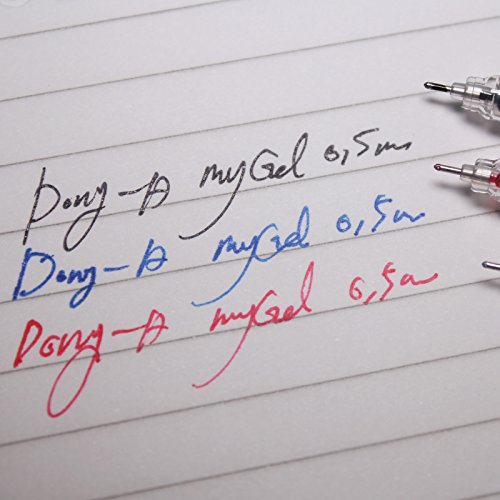 Dong-A myGel 0,5m
Dong-A myGel 0,5m
Dong-A myGel 0,5m